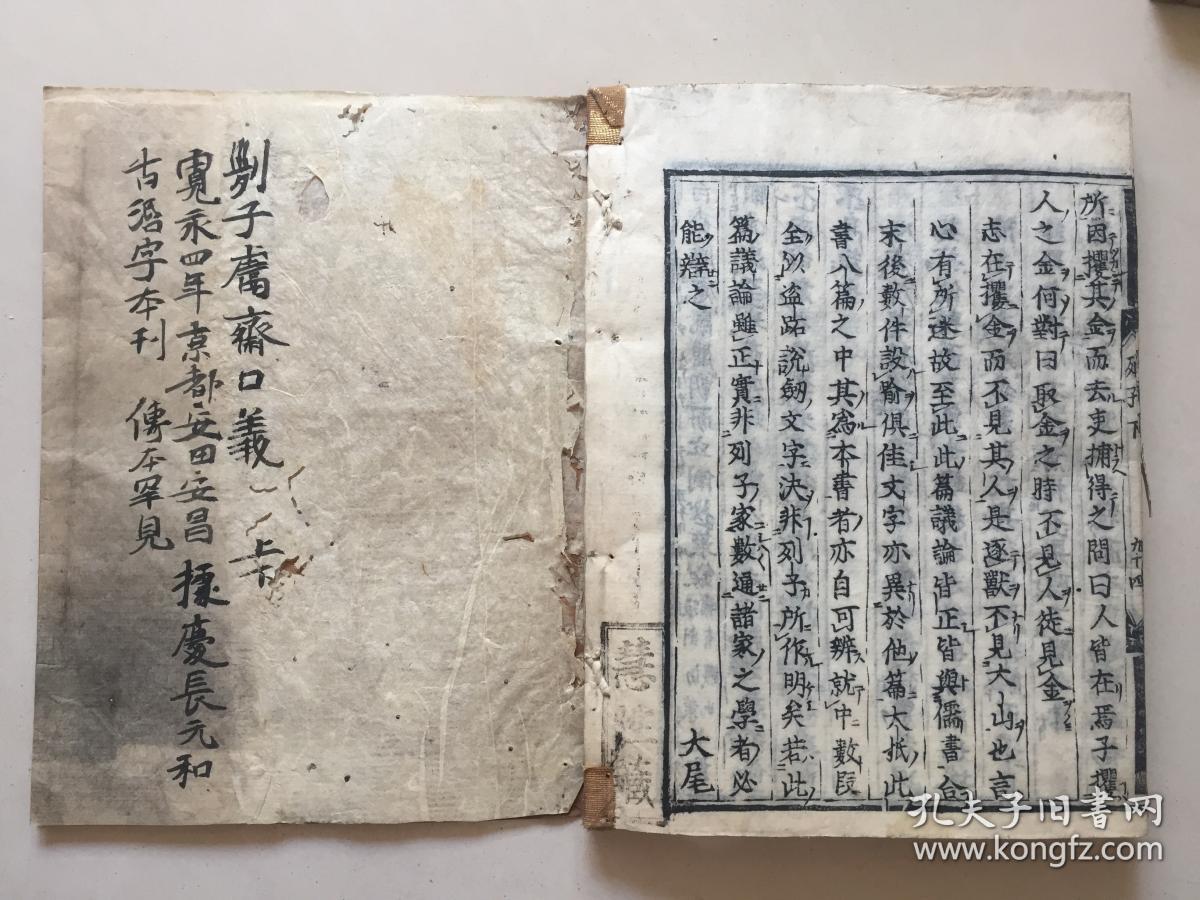 所因攫其金而去吏捕得之問曰人皆在焉子攫
人之金何對曰取金之時不見人徒見金
志在攫金而不見其人是逐獸不見大山也言
心有所迷故至此此篇議論皆正皆與儒書合
末後數件設喻俱佳文字亦異於他篇大抵此
書八篇之中其為本書者亦自可辨就中數段
全以盗跖說劔文字決非列子所作明矣若此
篇議論雖正實非列子家數通諸家之學者必
能辯之
大尾
列子下
九十四
列子鬳齋口義 上下
寛永四年京都安田安昌 據慶長元和
古活字本刊 傳本罕見
藏
孔夫子旧书网
www.kongfz.com